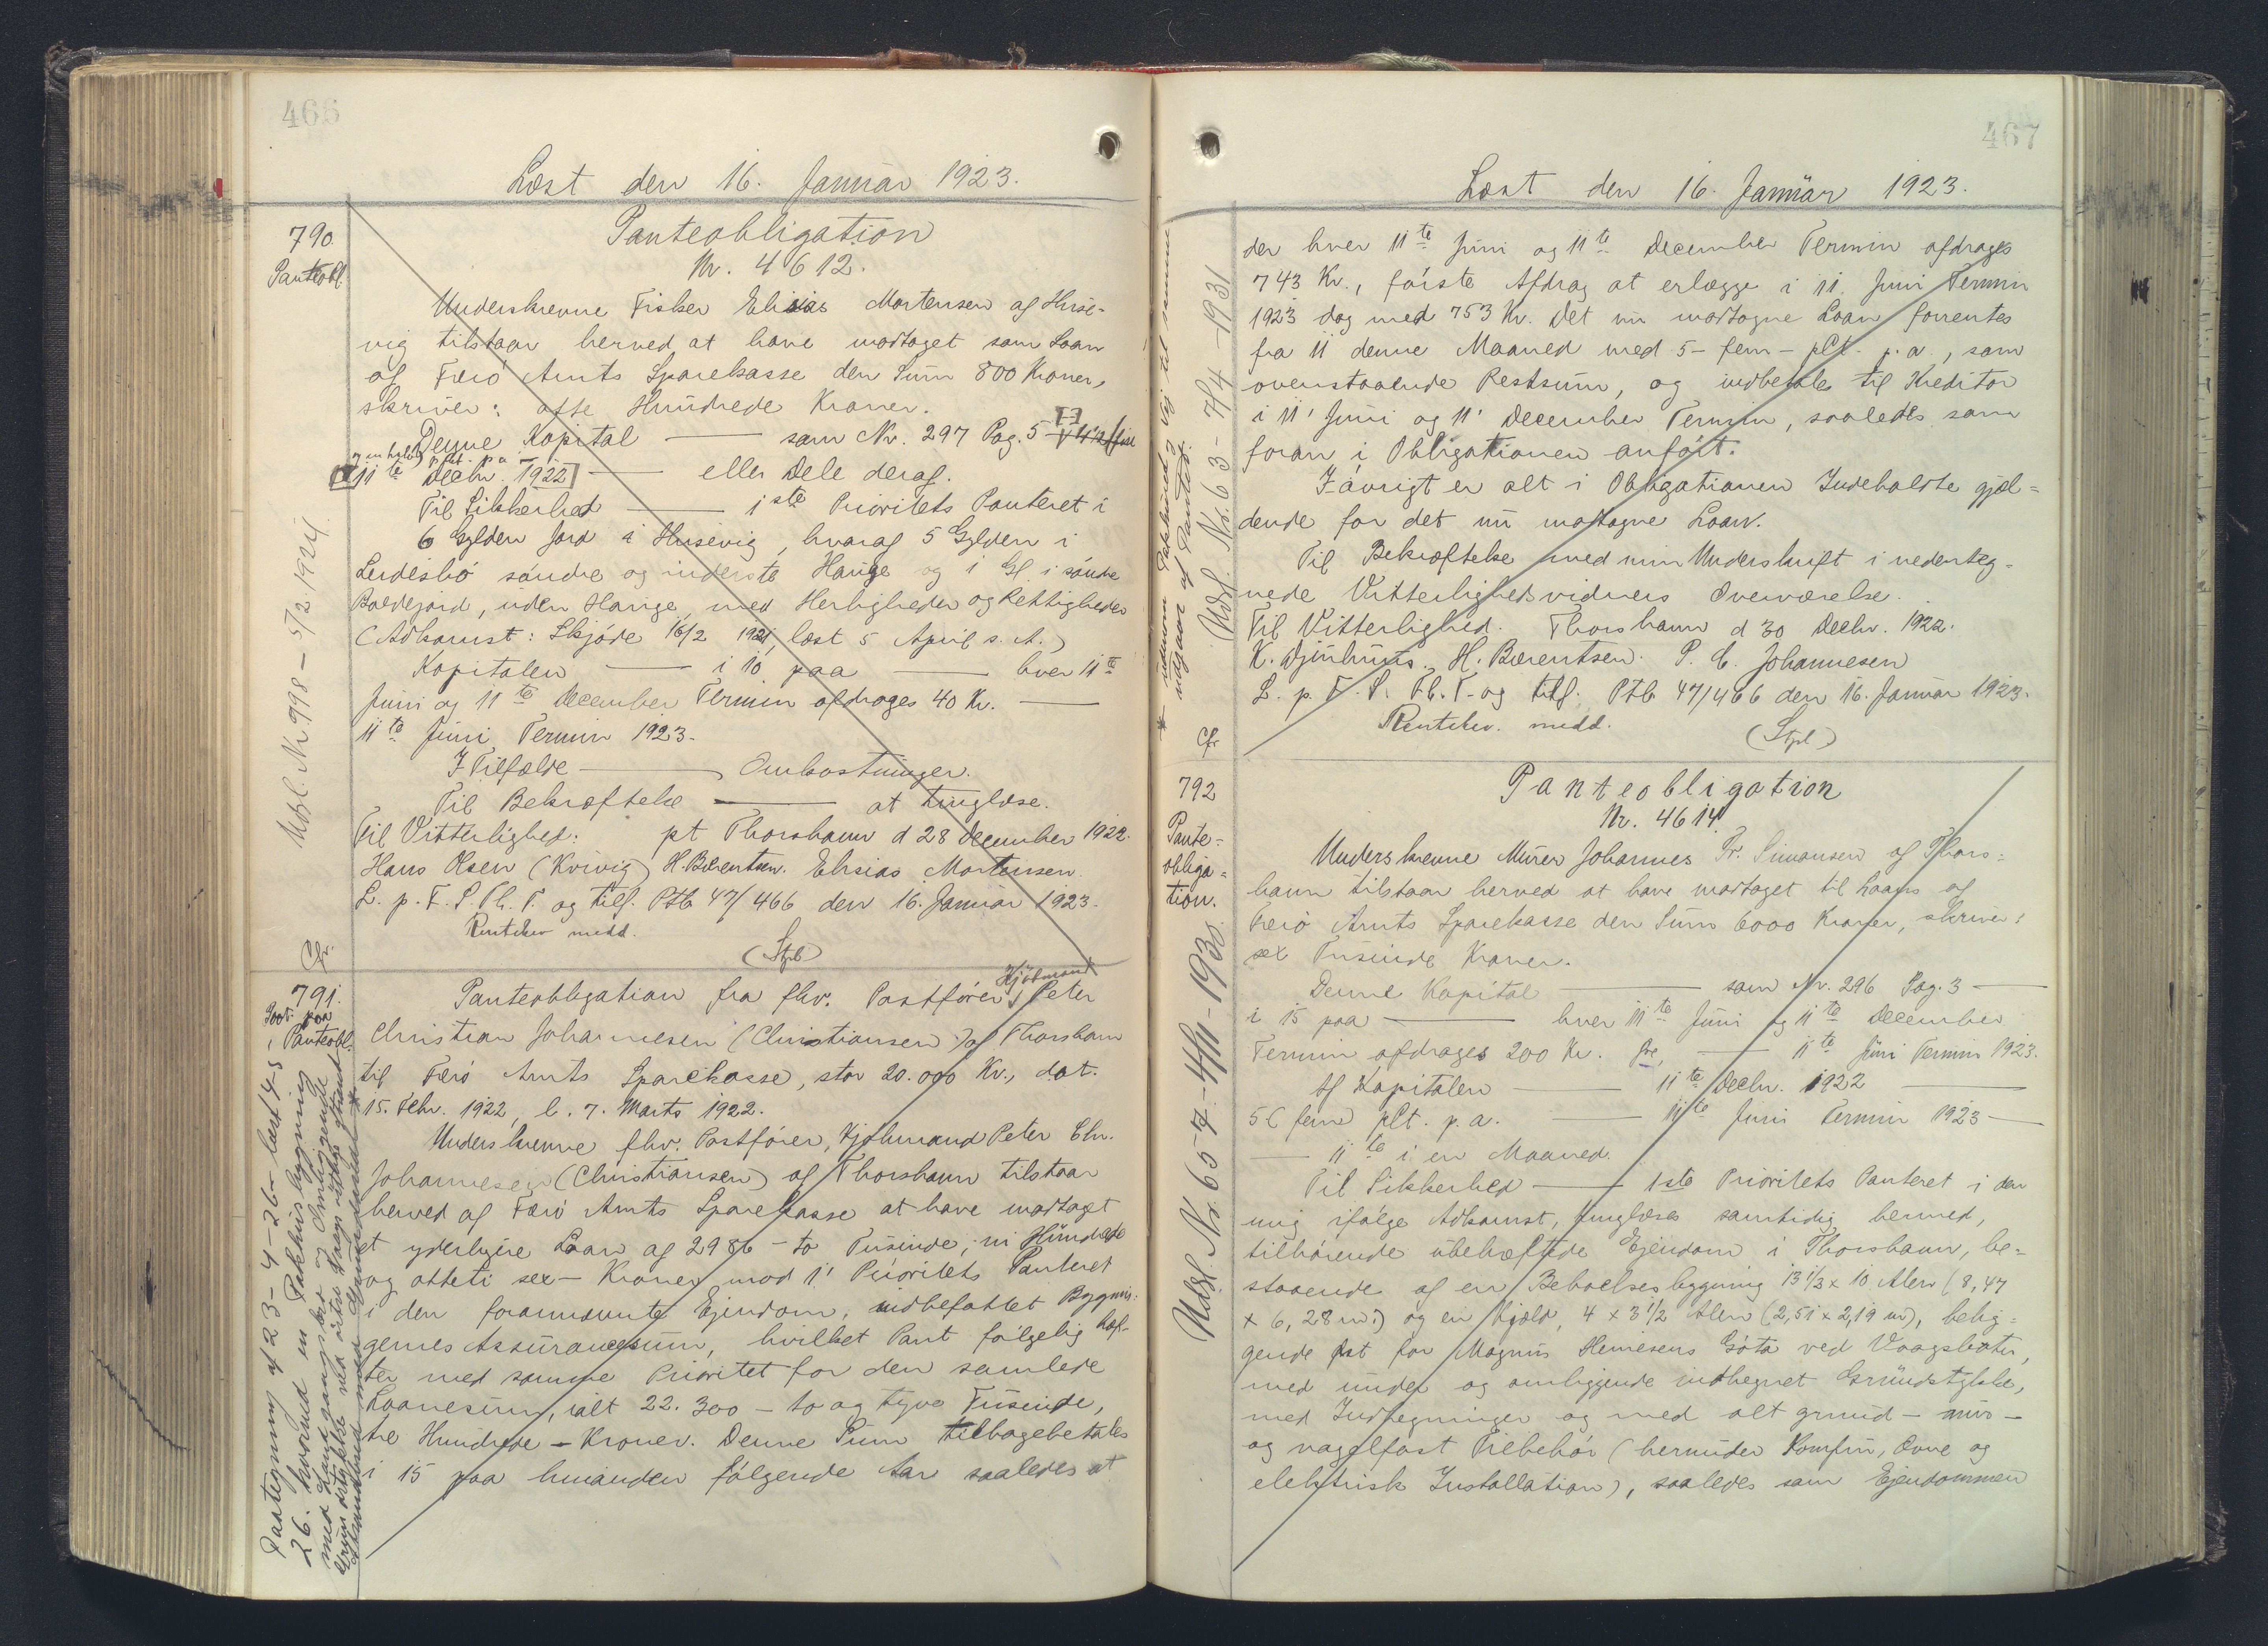 466
Læst den 16. Januar 1923.
790.
Panteobl.
Panteobligation
Nr. 4612.
Underskrevne Fisker Elisias Mortensen af Huse-
vig tilstaar herved at have modtaget som Laan
af Færö Amts Sparekasse den Sum 800 Kroner,
skriver: otte Hundrede Kroner.
Denne Kapital — som Nr. 297 Pag. 5 —
11te Decbr. 1922 — eller Dele deraf.
Til Sikkerhed — 1ste Prioritets Panteret i
6 Gylden Jord i Husevig, hvoraf 5 Gylden i
Lerdesbö söndre og inderste Hauge og 1 Gl. i söndre
Boedejord, uden Hauge, med Herligheder og Rettigheder
(Adkomst: Skjöde 16/2 1921, læst 5 April s. A.)
Kapitalen — i 10 paa — hver 11te
Juni og 11te December Termin afdrages 40 Kr. —
11te Juni Termin 1923.
I Tilfælde — Omkostninger.
Til Bekræftelse — at tinglæse.
Til Vitterlighed: pt Thorshavn d 28 December 1922.
Hans Olsen (Kvivig) H. Bærentsen. Elisias Mortensen.
L. p. F. S. Fl. T. og tilf. Ptb 47/466 den 16. Januar 1923.
Rentebev. medd.
(Stpl)
Udsl. Nr 998 – 5/2 1924.
Cfr.
791.
Paat. paa
Panteobl.
Panteobligation fra fhv. Postförer, Kjöbmand Peter
Christian Johannesen (Christiansen) af Thorshavn
til Færö Amts Sparekasse, stor 20.000 Kr., dat.
15. Febr. 1922, l. 7. Marts 1922.
Underskrevne fhv. Postförer, Kjöbmand Peter Chr.
Johannesen (Christiansen) af Thorshavn tilstaar
herved af Færö Amts Sparekasse at have modtaget
et yderligere Laan af 2986 – to Tusinde, ni Hundrede
og otteti sex – Kroner mod 1' Prioritets Panteret
i den forannævnte Ejendom, indbefattet Bygnin-
gernes Assurancesum, hvilket Pant fölgelig hæf-
ter med samme Prioritet for den samlede
Laanesum, ialt 22.300 – to og tyve Tusinde,
tre Hundrede – Kroner. Denne Sum tilbagebetales
i 15 paa hinanden fölgende Aar saaledes at
Paategning af 23-4-26 – læst 4-5
26. hvorved en Pakhusbygning
467
Læst den 16. Januar 1923.
der hver 11te Juni og 11te December Termin afdrages
743 Kr., förste Afdrag at erlægge i 11. Juni Termin
1923 dog med 753 Kr. Det nu modtagne Laan forrentes
fra 11 denne Maaned med 5 – fem – pCt. p. a., som
ovenstaaende Restsum, og indbetale til Kreditor
i 11' Juni og 11' December Termin, saaledes som
foran i Obligationen anfört.
Iövrigt er alt i Obligationen Indeholdte gjæl-
dende for det nu modtagne Laan.
Til Bekræftelse med min Underskrift i nedenteg-
nede Vitterlighedsvidners Overværelse.
Til Vitterlighed. Thorshavn d 30 Decbr. 1922.
K. Djurhuus. H. Bærentsen. P. C. Johannesen
L. p. F. S. Fl. T. og tilf. Ptb 47/466 den 16. Januar 1923.
Rentebev. medd.
(Stpl)
udgaar af Pantet.
Udsl. Nr. 63 – 7/4 – 1931
Cfr
792
Pante-
obliga-
tion.
Panteobligation
Nr. 4614.
Underskrevne Murer Johannes Fr. Simonsen af Thors-
havn tilstaar herved at have modtaget til Laans af
Færö Amts Sparekasse den Sum 6000 Kroner, skriver:
sex Tusinde Kroner.
Denne Kapital — som Nr. 296 Pag. 3 —
i 15 paa — hver 11te Juni og 11te December
Termin afdrages 200 Kr. — 11te Juni Termin 1923.
Af Kapitalen — 11te Decbr. 1922 —
5 (fem pCt. p. a. — 11te Juni Termin 1923 —
— 11te i en Maaned.
Til Sikkerhed — 1ste Prioritets Panteret i den
mig ifölge Adkomst, tinglæses samtidig hermed,
tilhörende ubehæftede Ejendom i Thorshavn, be-
staaende af en Beboelsesbygning 13 1/3 x 10 Alen (8,47
x 6,28 m.) og en Kjald, 4 x 3 1/2 Alen (2,51 x 2,19 m), belig-
gende Øst for Magnus Heinesens Göta ved Vaagsbotn,
med under og omliggende indhegnet Grundstykke,
med Indhegninger og med alt grund – mur –
og nagelfast Tilbehör (herunder Komfur, Ovne og
elektrisk Installation), saaledes som Ejendommen
Udsl. Nr. 657 – 4/11 – 1930.